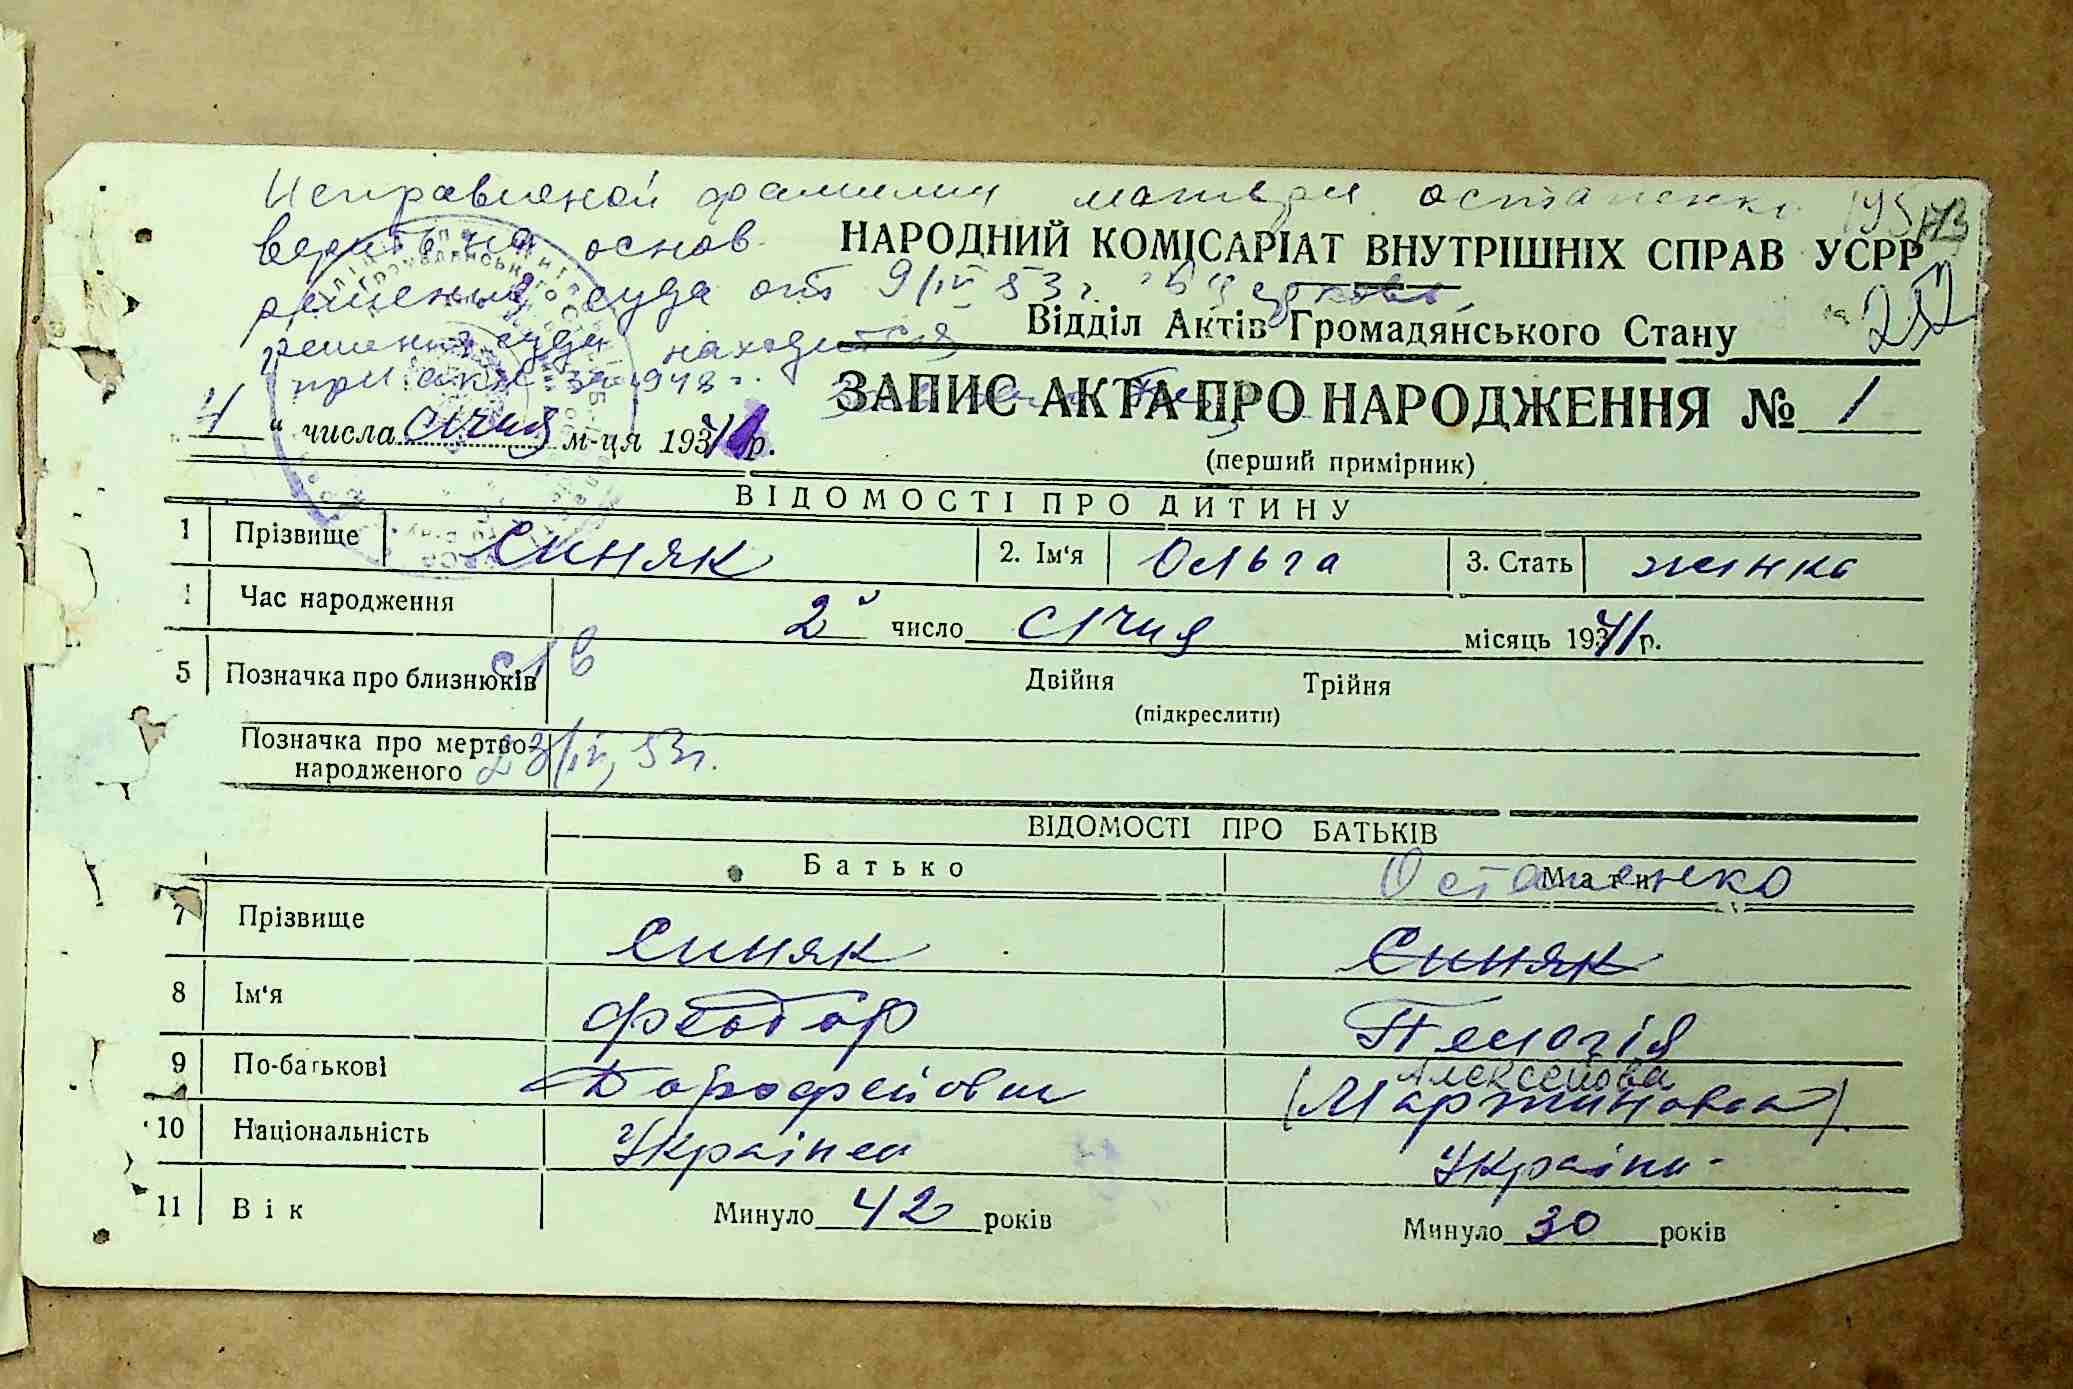 Исправленой фамилии матери Остапенко 195
верить на основ.
НАРОДНИЙ КОМІСАРІАТ ВНУТРІШНІХ СПРАВ УСРР
решения суда от 9/IV 53 г.
Відділ Актів Громадянського Стану
решения суда находится
при акте 1948 г.
ЗАПИС АКТА ПРО НАРОДЖЕННЯ № 1
4 " числа січня м-ця 1941 р.
(перший примірник)
ВІДОМОСТІ ПРО ДИТИНУ
1 Прізвище Синяк 2. Ім'я Ольга 3. Стать жинка
Час народження 2й число січня місяць 1941 р.
5 Позначка про близнюків Двійня Трійня
(підкреслити)
Позначка про мертво-
народженого 23/IV, 53г.
ВІДОМОСТІ ПРО БАТЬКІВ
Батько Мати
Остапенко
7 Прізвище Синяк Синяк
8 Ім'я Феодор Пелагія
Алексеивна
9 По-батькові Дорофейович (Мартиновна)
10 Національність Українец Україн-
11 Вік Минуло 42 років Минуло 30 років